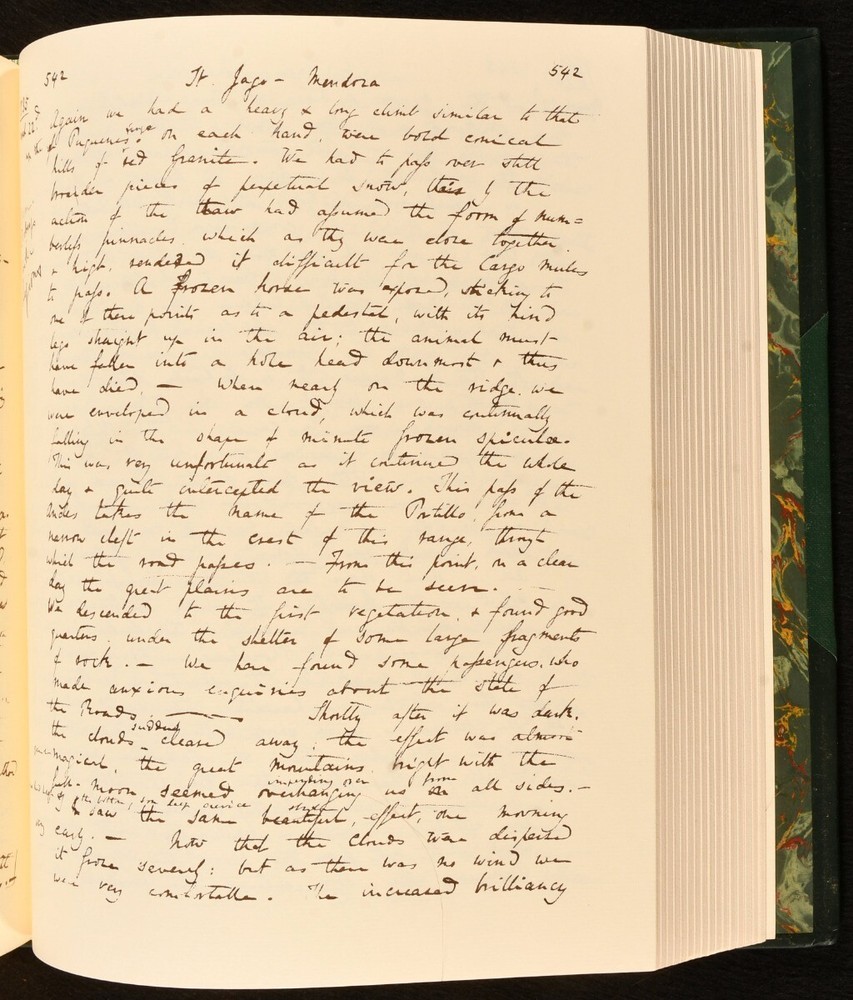 542 St. Jago - Mendoza 542
Again we had a heavy & long climb similar to that
of Puquenes range. on each hand, were bold conical
hills of red Granite. We had to pass over still
broader pieces of perpetual snow, this by the
action of the thaw had assumed the form of num=
berless pinnacles. which as they were close together.
& high, rendered it difficult for the Cargo Mules
to pass. A frozen horse was exposed, sticking to
one of these points as to a pedestal, with its hind
legs straight up in the air; the animal must
have fallen into a hole head downmost & thus
have died. — When nearly on the ridge. we
were enveloped in a cloud, which was continually
falling in the shape of minute frozen spiculæ.
This was very unfortunate as it continued the whole
day & quite intercepted the view. This pass of the
Andes takes the name of the Portillo, from a
narrow cleft in the crest of this range, through
which the road passes. — From this point, on a clear
day the great plains are to be seen. —
We descended to the first vegetation, & found good
quarters. under the shelter of some large fragments
of rock. — We here found some passengers. who
made anxious enquiries about the state of
the Roads. — Shortly after it was dark.
the clouds suddenly cleared away; the effect was almost
magical, the great mountains. bright with the
full moon seemed impending over overhanging us from on all sides. —
saw the same beautiful, effect, one morning
early. — Now that the clouds were dispersed
it froze severely: but as there was no wind we
were very comfortable. The increased brilliancy